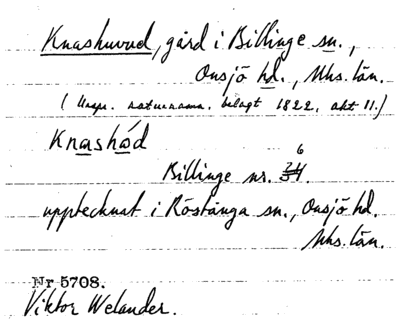 Knashuvud, gård i Billinge sn.,
Onsjö hd., Mhs. län.
(Urspr. naturnamn. belagt 1822, akt 11.)
Knashód
6
Billinge nr.
upptecknat i Röstånga sn., Onsjö hd.
Mhs. län.
Nr 5708.
Viktor Welander.